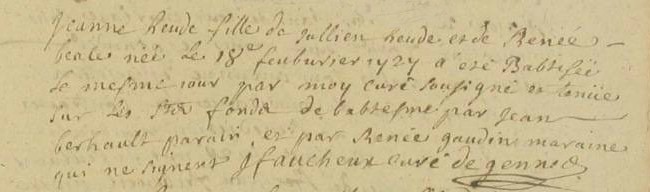 Jeanne heude fille de Jullien heude et de Renée
beale née le 18e feuburier 1727 a eté Babtiseé
le mesme iour par moy curé sousigné et tenüe
sur les sts fonds de babtesme par Jean
berhault parain, et par Renée gaudin maraine
qui ne signent J faucheux curé de gennes